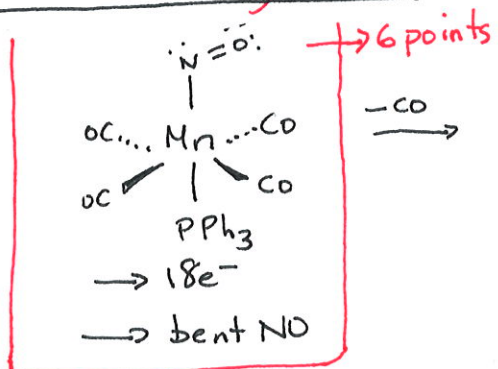 N=O: → 6 points
OC Mn CO
OC CO
PPh3
→ 18e⁻
→ bent NO
–CO
→